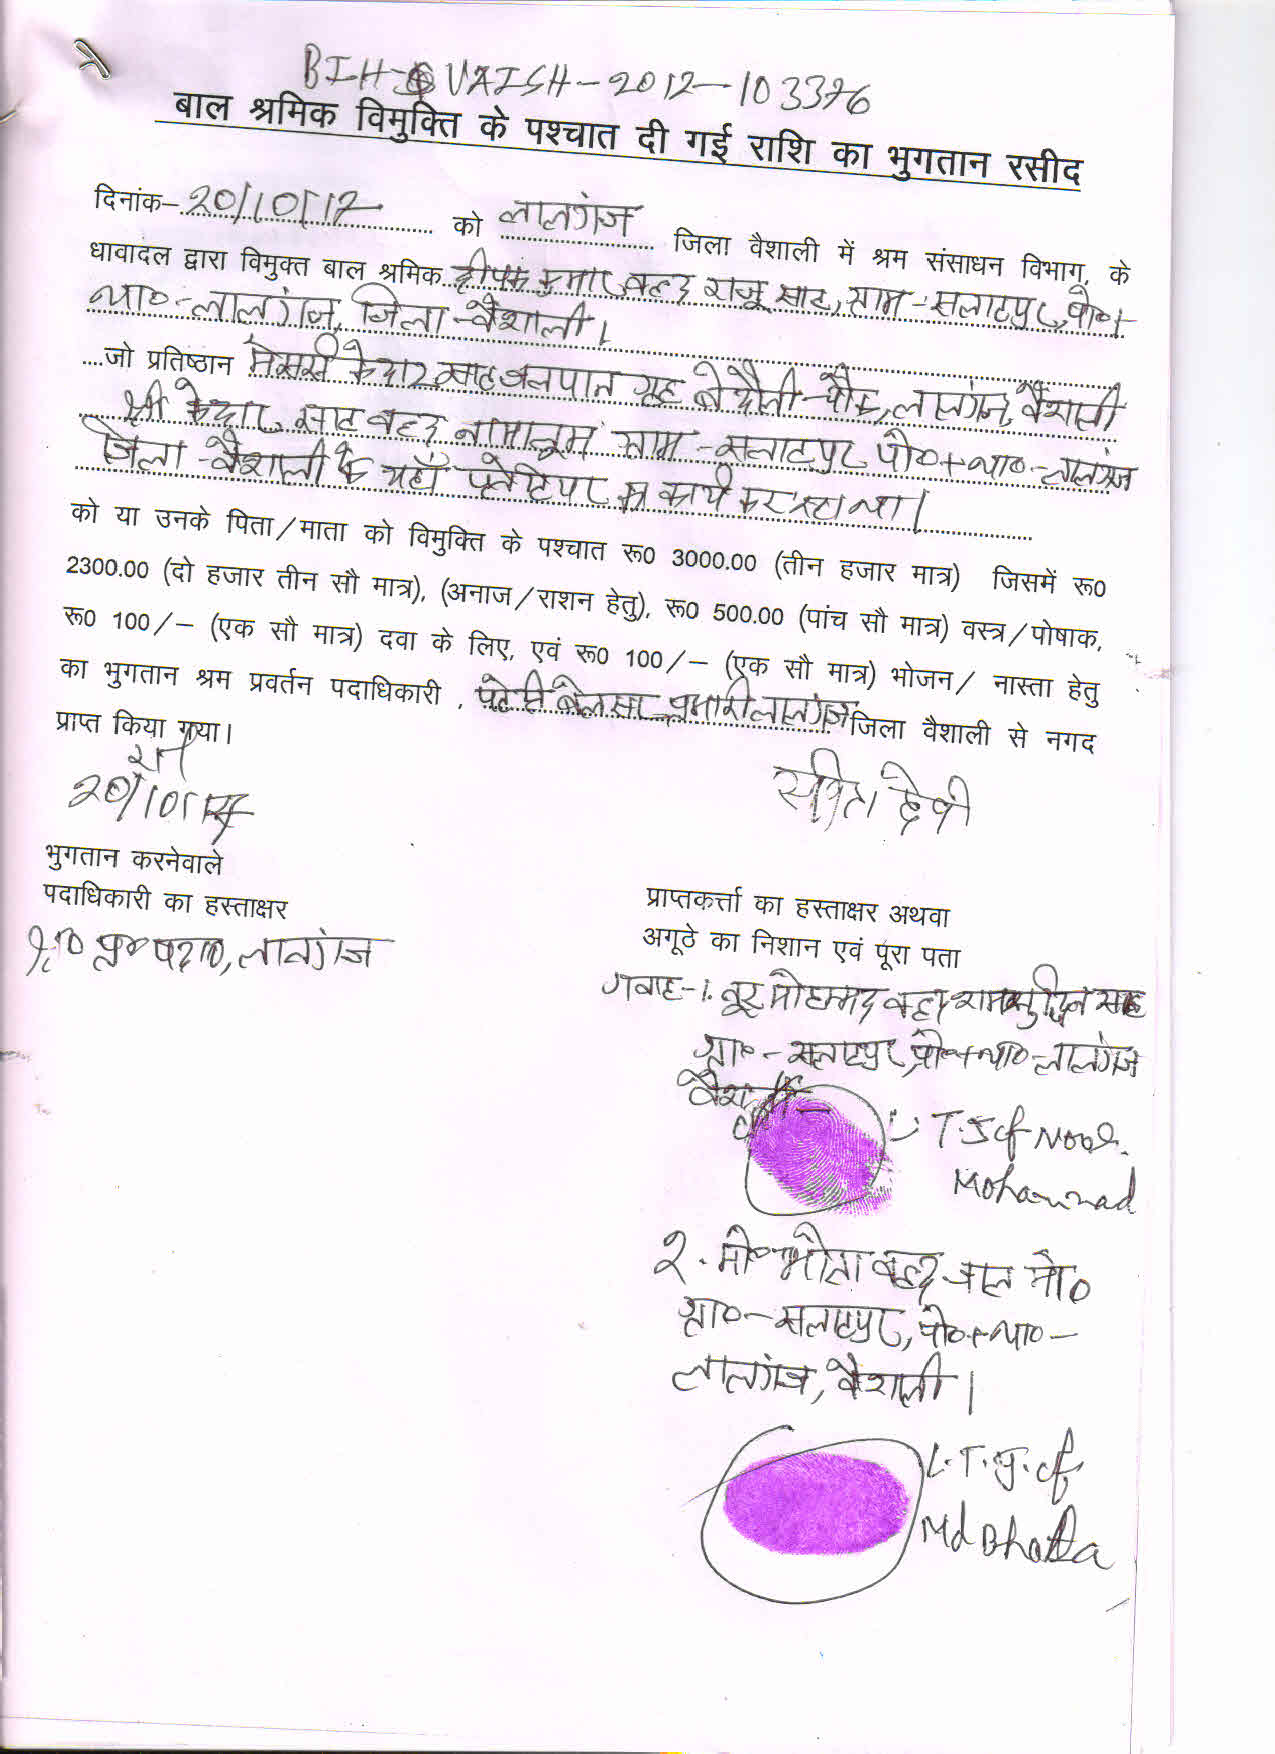 BIH-VAISH-2012-103376
बाल श्रमिक विमुक्ति के पश्चात दी गई राशि का भुगतान रसीद
दिनांक- 20/10/12 को लालगंज जिला वैशाली में श्रम संसाधन विभाग, के
धावादल द्वारा विमुक्त बाल श्रमिक दीपक कुमार वल्द राजू साह, ग्राम-सलाहपुर, पो०+
था०-लालगंज, जिला-वैशाली।
....जो प्रतिष्ठान मेसर्स केदार साह जलपान गृह चौक, लालगंज, वैशाली
श्री केदार साह वल्द नामालूम ग्राम-सलाहपुर पो०+था०-लालगंज
जिला-वैशाली के यहाँ का कार्य कर रहा था।
को या उनके पिता/माता को विमुक्ति के पश्चात रू0 3000.00 (तीन हजार मात्र) जिसमें रू0
2300.00 (दो हजार तीन सौ मात्र), (अनाज/राशन हेतु), रू0 500.00 (पांच सौ मात्र) वस्त्र/पोषाक,
रू0 100/- (एक सौ मात्र) दवा के लिए, एवं रू0 100/- (एक सौ मात्र) भोजन/ नास्ता हेतु
का भुगतान श्रम प्रवर्तन पदाधिकारी , पटेढ़ी बेलसर, प्रभारी लालगंज जिला वैशाली से नगद
प्राप्त किया गया।
20/10/12
भुगतान करनेवाले
पदाधिकारी का हस्ताक्षर
लालगंज
देवी
प्राप्तकर्त्ता का हस्ताक्षर अथवा
अगूठे का निशान एवं पूरा पता
गवाह-1. नूर मोहम्मद वल्द साह
ग्रा०-सलाहपुर, पो०+था०-लालगंज
वैशाली
L.T.I of Noor
Mohammad
2. मो० वल्द मो०
ग्रा०-सलाहपुर, पो०+था०-
लालगंज, वैशाली।
L.T.I. of
Md Bhotta